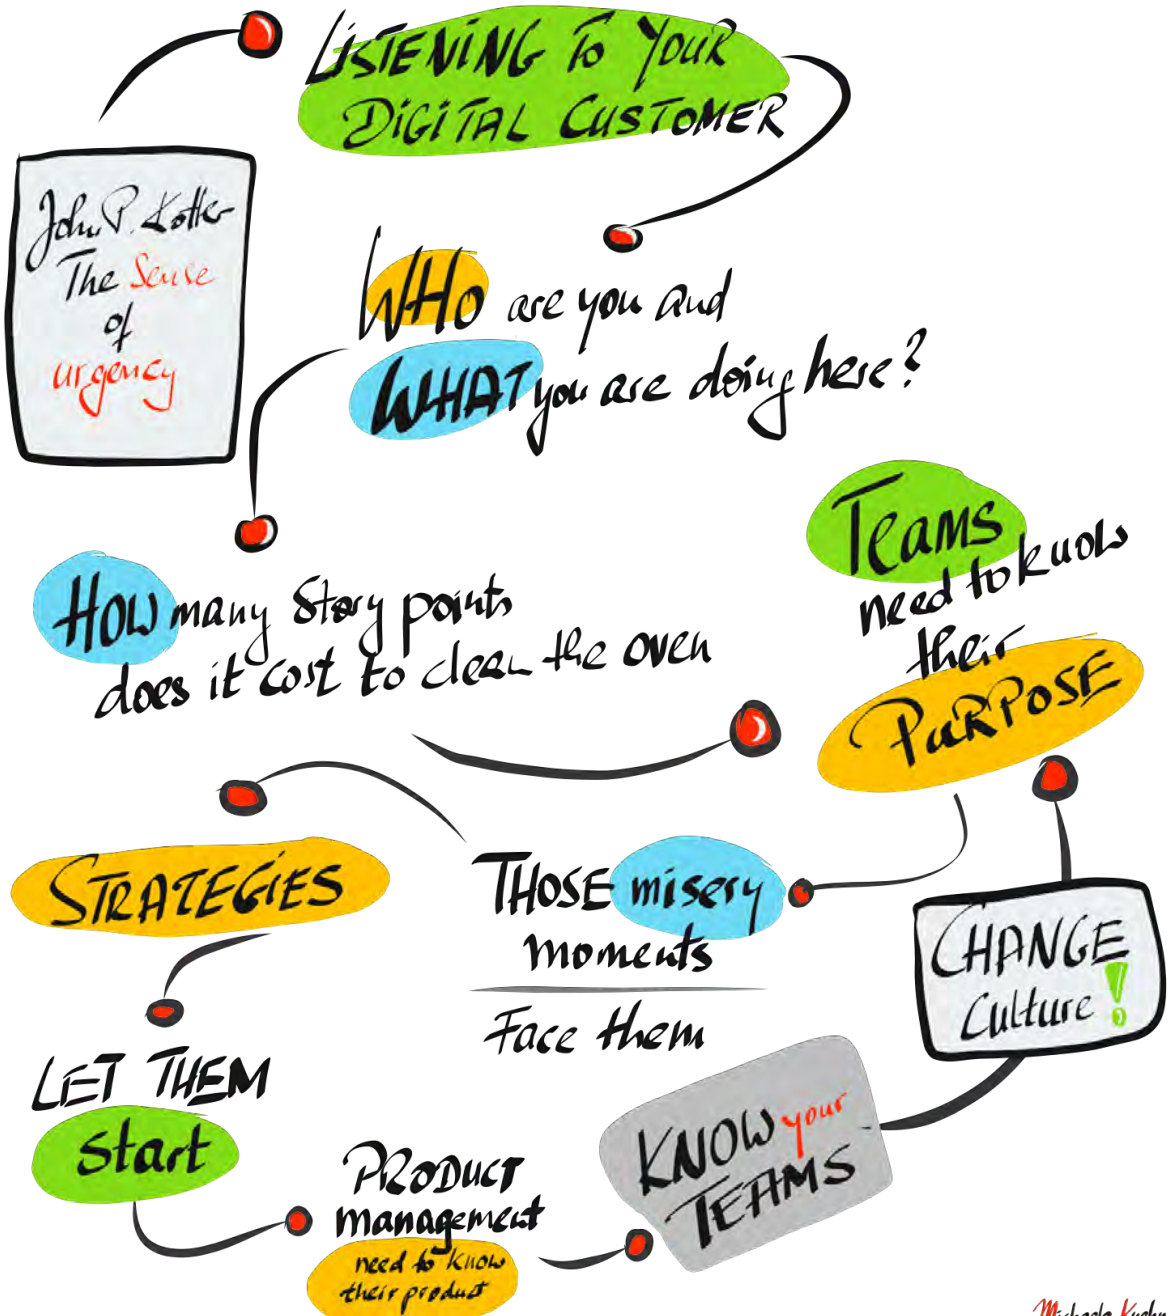 LISTENING TO YOUR
DIGITAL CUSTOMER
John P. Kotter
The Sense
of
urgency
WHO are you and
WHAT you are doing here?
HOW many Story points
does it cost to clean the oven
Teams
need to know
their
PURPOSE
STRATEGIES
THOSE misery
moments
Face them
CHANGE
Culture!
LET THEM
Start
PRODUCT
management
need to know
their product
KNOW your
TEAMS